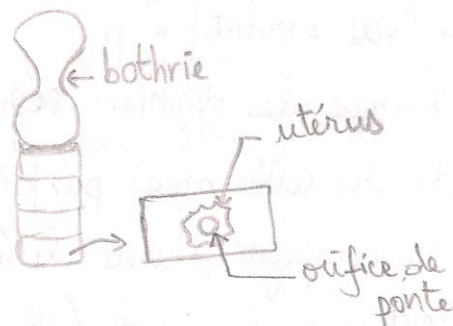 bothrie
utérus
orifice de
ponte